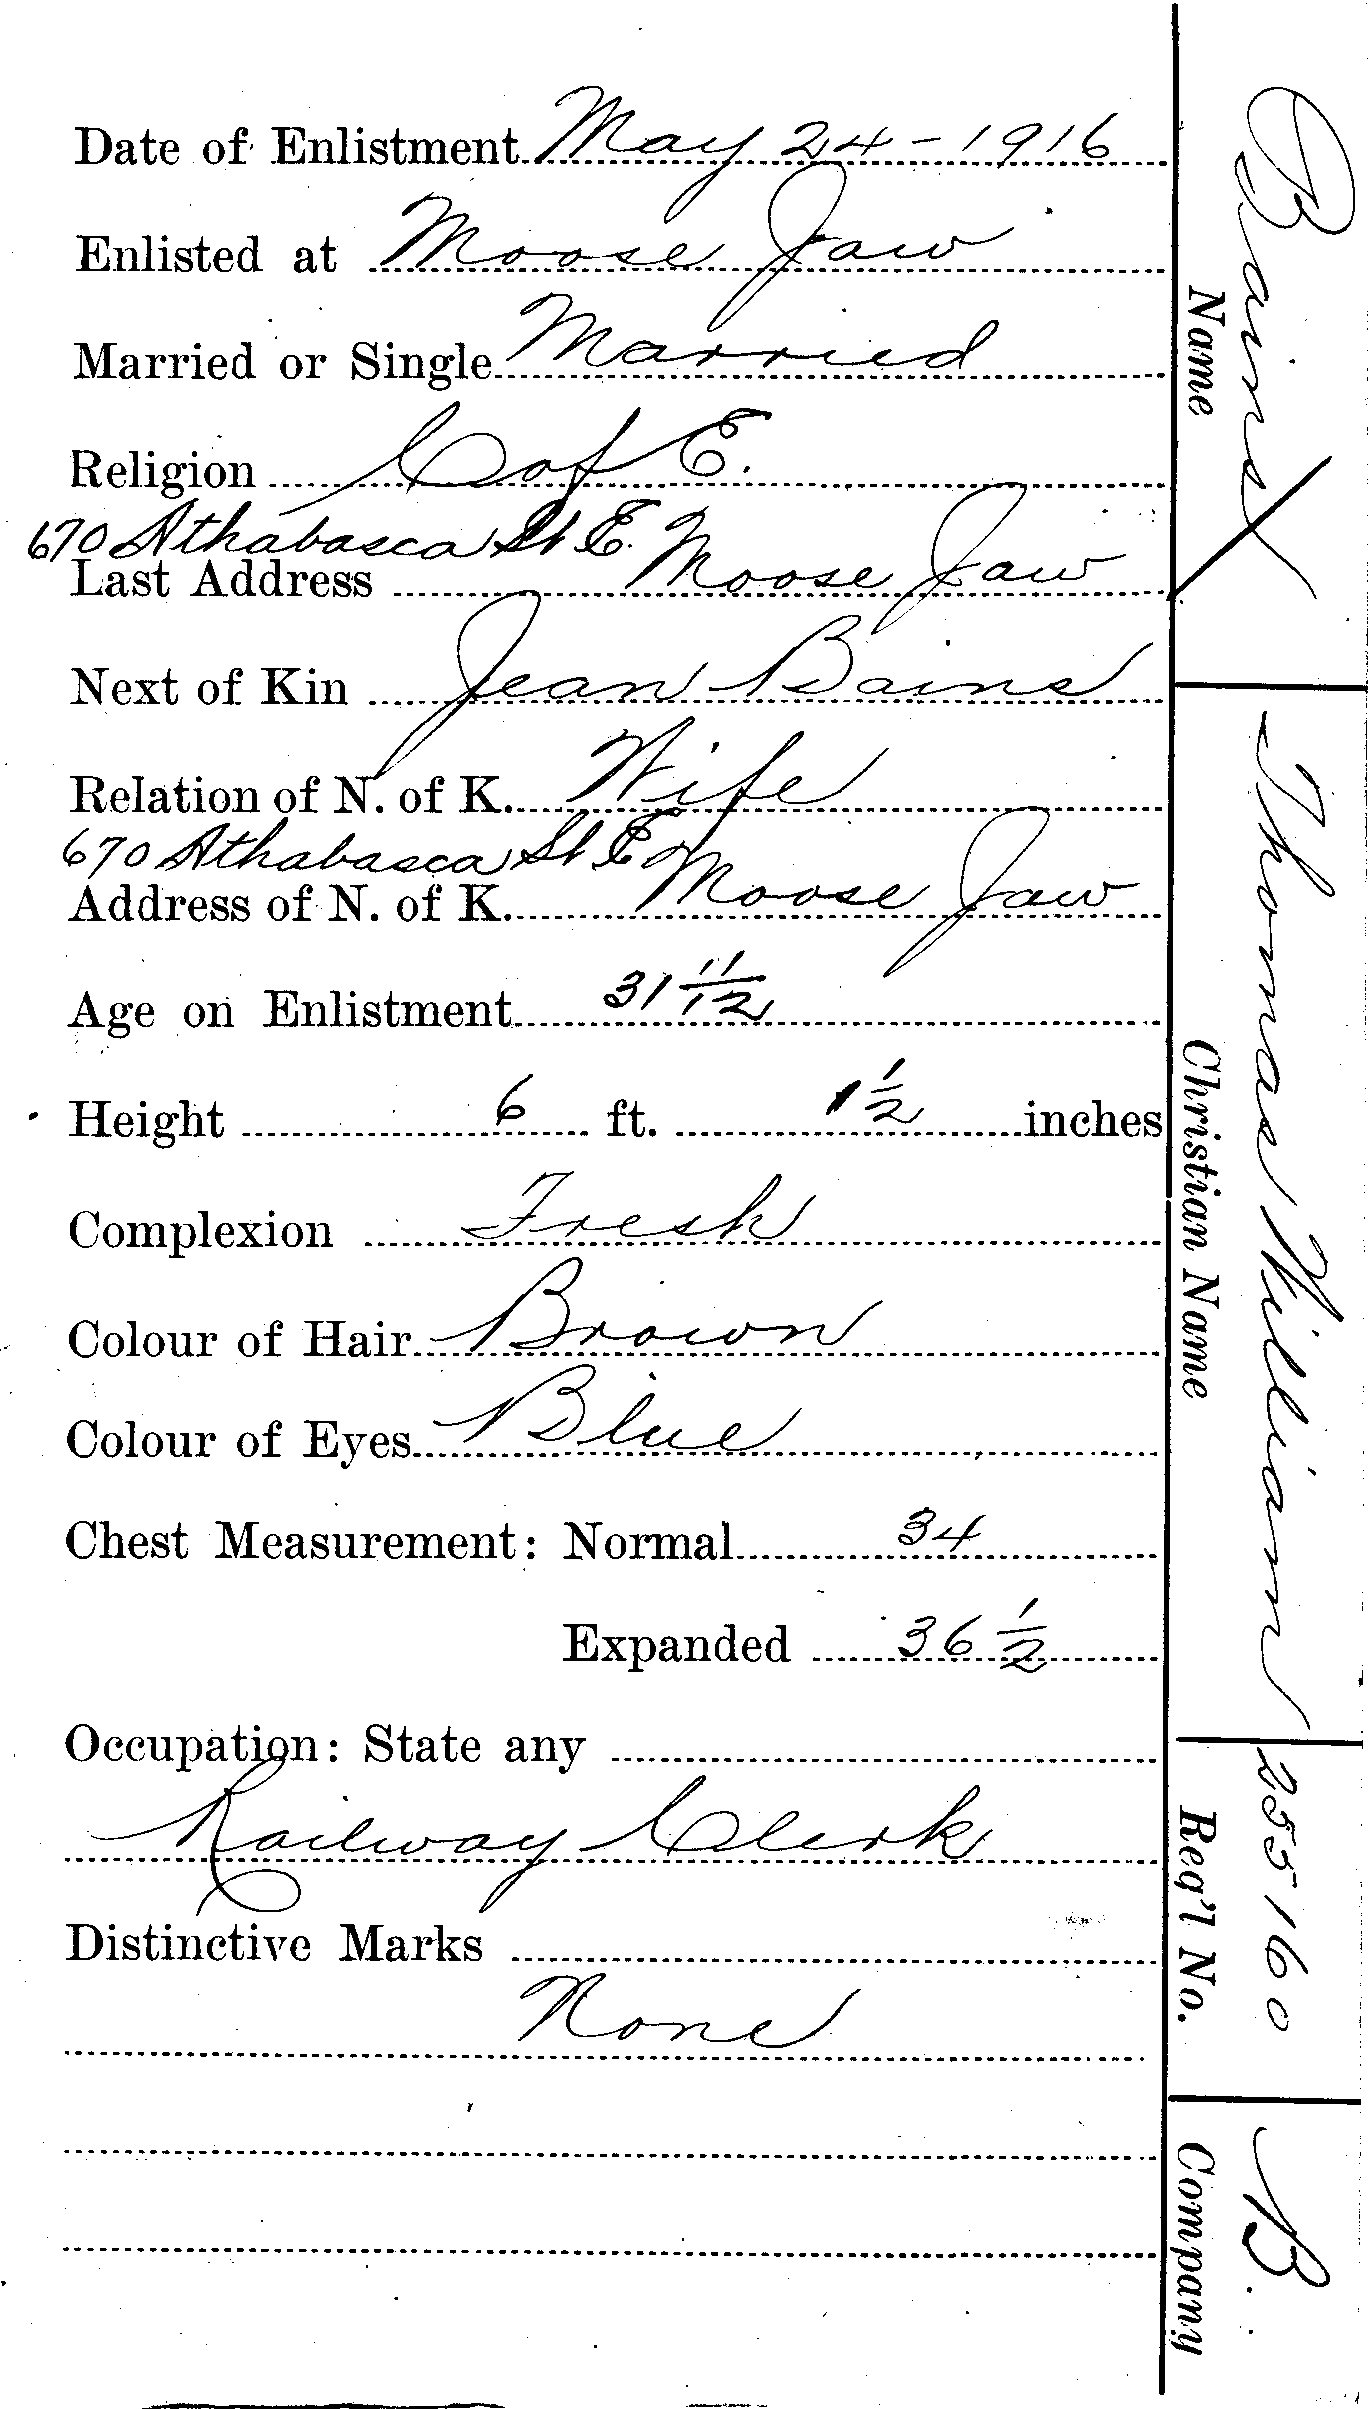 Date of Enlistment May 24 - 1916
Enlisted at Moose Jaw
Married or Single Married
Religion C of E.
670 Athabasca St E.
Last Address Moose Jaw
Next of Kin Jean Bains
Relation of N. of K. Wife
670 Athabasca St E
Address of N. of K. Moose Jaw
Age on Enlistment 31 11/12
Height 6 ft. 1 1/2 inches
Complexion Fresh
Colour of Hair Brown
Colour of Eyes Blue
Chest Measurement: Normal 34
Expanded 36 1/2
Occupation: State any
Railway Clerk
Distinctive Marks
None
Bains
Name
Thomas William
Christian Name
255160
Reg'l No.
B.
Company